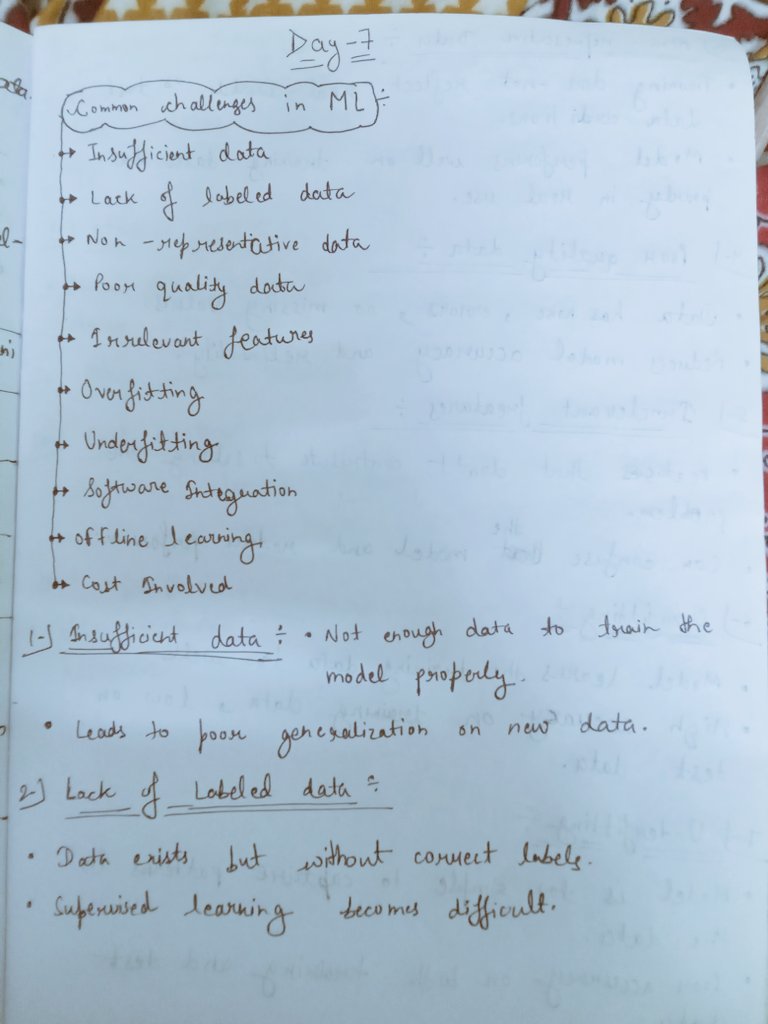 Day-7
Common challenges in ML ÷
→ Insufficient data
→ Lack of labeled data
→ Non-representative data
→ Poor quality data
→ Irrelevant features
→ Overfitting
→ Underfitting
→ Software Integration
→ Offline learning
→ Cost Involved
1-) Insufficient data ÷ • Not enough data to train the
model properly.
• Leads to poor generalization on new data.
2-) Lack of Labeled data ÷
• Data exists but without correct labels.
• Supervised learning becomes difficult.